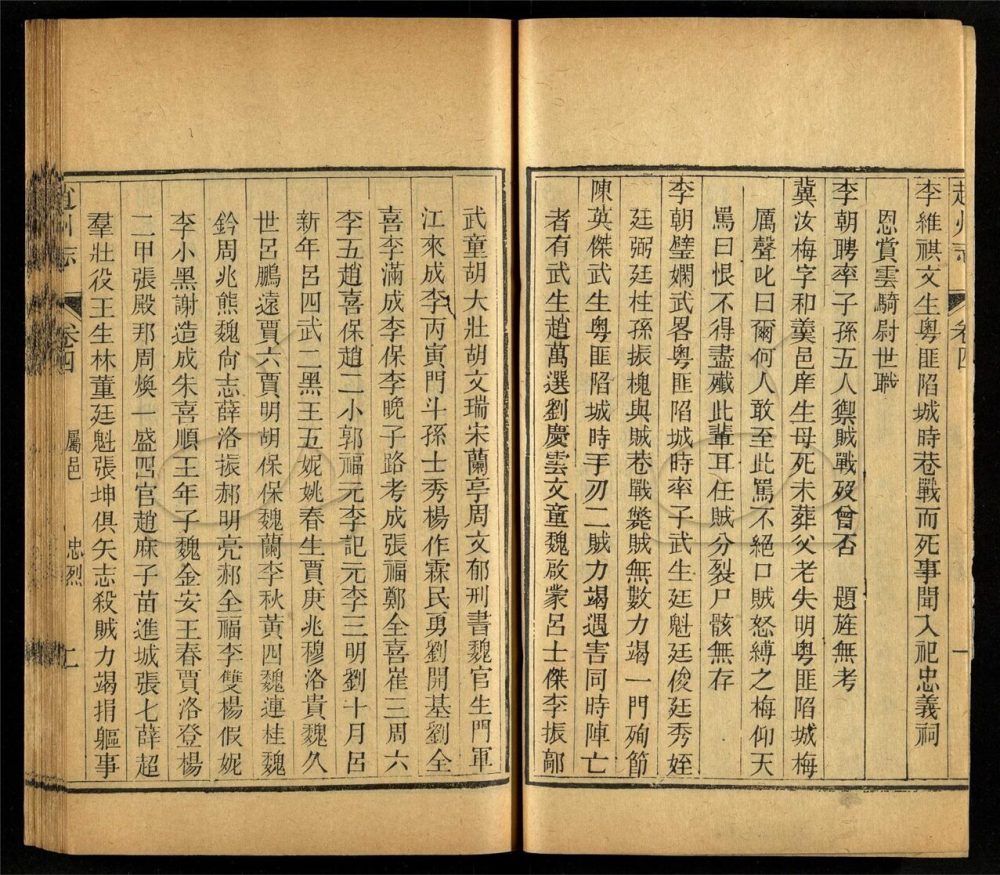 趙州志 卷四 一
李維祺文生粵匪陷城時巷戰而死事聞入祀忠義祠
恩賞雲騎尉世職
李朝聘率子孫五人禦賊戰歿曾否 題旌無考
冀汝梅字和羹邑庠生母死未葬父老失明粵匪陷城梅
厲聲叱曰爾何人敢至此罵不絕口賊怒縛之梅仰天
罵曰恨不得盡殲此輩耳任賊分裂尸骸無存
李朝璧嫻武畧粵匪陷城時率子武生廷魁廷俊廷秀姪
廷弼廷柱孫振槐與賊巷戰斃賊無數力竭一門殉節
陳英傑武生粵匪陷城時手刃二賊力竭遇害同時陣亡
者有武生趙萬選劉慶雲文童魏啟蒙呂士傑李振鄗
武童胡大壯胡文瑞宋蘭亭周文郁刑書魏官生門軍
江來成李丙寅門斗孫士秀楊作霖民勇劉開基劉全
喜李滿成李保李晚子路考成張福鄭全喜崔三周六
李五趙喜保趙二小郭福元李記元李三明劉十月呂
新年呂四武二黑王五妮姚春生賈庚兆穆洛貴魏久
世呂鵬遠賈六賈明胡保保魏蘭李秋黃四魏連桂魏
鈐周兆熊魏尙志薛洛振郝明亮郝全福李雙楊假妮
李小黑謝造成朱喜順王年子魏金安王春賈洛登楊
二甲張殿邦周煥一盛四官趙麻子苗進城張七薛超
羣壯役王生林董廷魁張坤俱矢志殺賊力竭捐軀事
趙州志 卷四 屬邑 忠烈